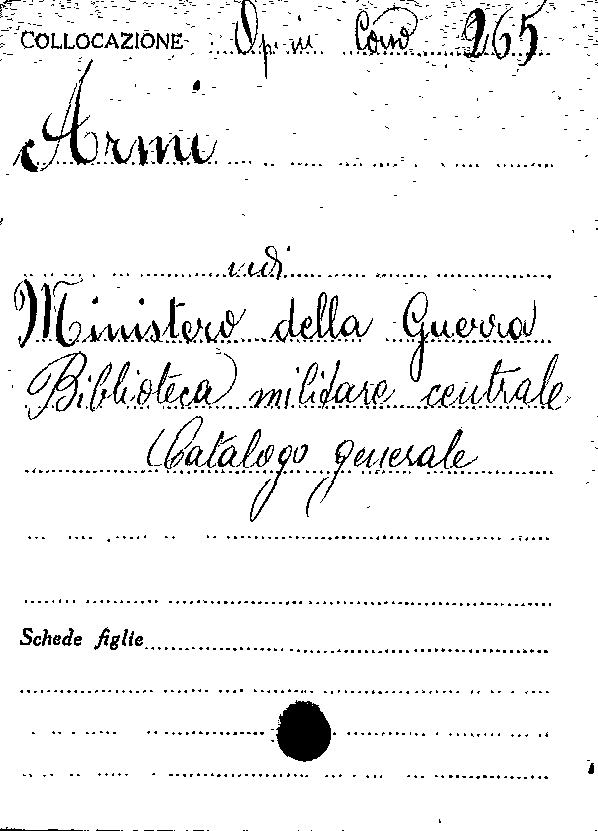 COLLOCAZIONE Op. in Cons 265
Armi
vedi
Ministero della Guerra
Biblioteca militare centrale
Catalogo generale
Schede figlie